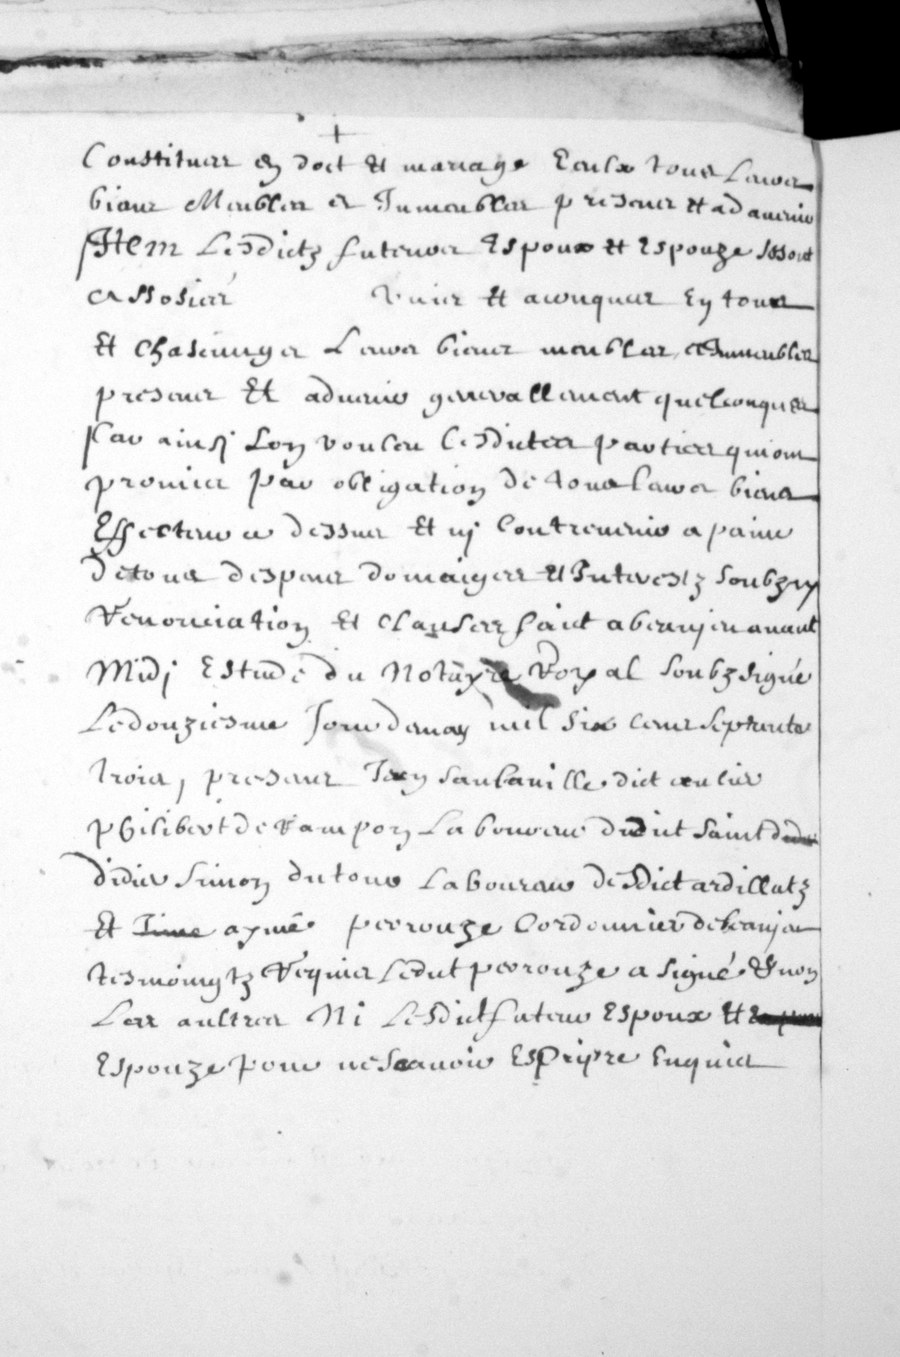 Constitues en dot et mariage Eeulx tous Leurs
biens Meubles et Inmeubles presens et advenir
Item Lesdictz futeurs Espoux et Espouze Issont
assosiés unis et aconques En tous
et chaseungs Leurs biens meubles et Inmeubles
presens Et advenir generallement quelconques
Car ainsj Lon vouleu Lesdictes parties quiont
promies par obligation de tous Leurs biens
Effecteur ce dessus Et nj Contrevenir a paine
de tous despens domaiges et Interestz soubz
Renonciation et Clauses faict a beaujeu avant
Midj Estude du Notayre Royal soubzsigné
Ledouziesme Jour de may mil six cens septente
trois, presens Jean
philibert de Rampon Laboureur dudit saint
didier Simon dutour Laboureur desdict ardillatz
Et aymé perrouze Cordonnier de beaujeu
tesmoingtz Requis Ledit perrouze a signé et non
Les aultres Ni Lesdict futeur Espoux Et
Espouze pour nescavoir Escripre Enquis